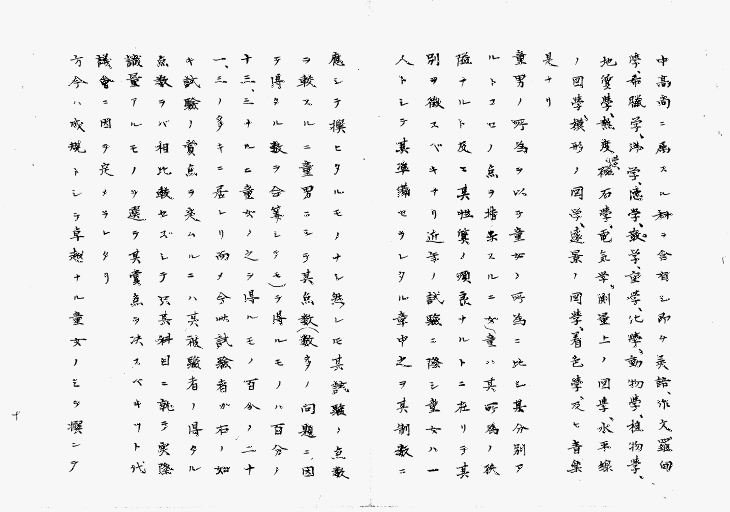 中高尚ニ属スル科ヲ含有シ即チ英語、作文、羅甸
學、希臘学、洋学、感学、数学、重学、化學、動物學、植物學、
地質學、熱度學、磁石學、電気学、測量上ノ図學、水平線
ノ図學、模形ノ図学、遠景ノ図學、着色學、及ヒ音樂
是ナリ
童男ノ所為ヲ以テ童女ノ所為ニ比シ甚分別ヲ
ルトコロノ点ヲ指示スルニ女童ハ其所為ノ
ナルト及ヒ其性質ノ順良ナルトニ在リテ其
別ヲ徴スベキナリ近等ノ試驗ニ際シ童女ハ一
人トシテ其準備セラレタル章中之ヲ其割数ニ
應シテ撰ヒタルモノナシ然レトモ其試驗ノ点数
ヲ較スルニ童男ニシテ其点数(数多ノ問題ニ因
テ得タル数ヲ合算シテモ)ヲ得ルモノハ百分ノ
十三、三ナルニ童女ノ之ヲ得ルモノ百分ノ二十
一、三ノ多キニ居レリ而メ今此試驗者ガ右ノ如
キ試驗ノ賞点ヲ與ムルニハ其被驗者ノ得タル
点数ヲバ相比較セズシテ只其科目ニ就テ実際
識量アルモノヲ選テ其賞点ヲ決スベキヿト代
議會ニ因テ定メラレタリ
方今ハ成規トシテ卓越ナル童女ノミヲ撰ンテ